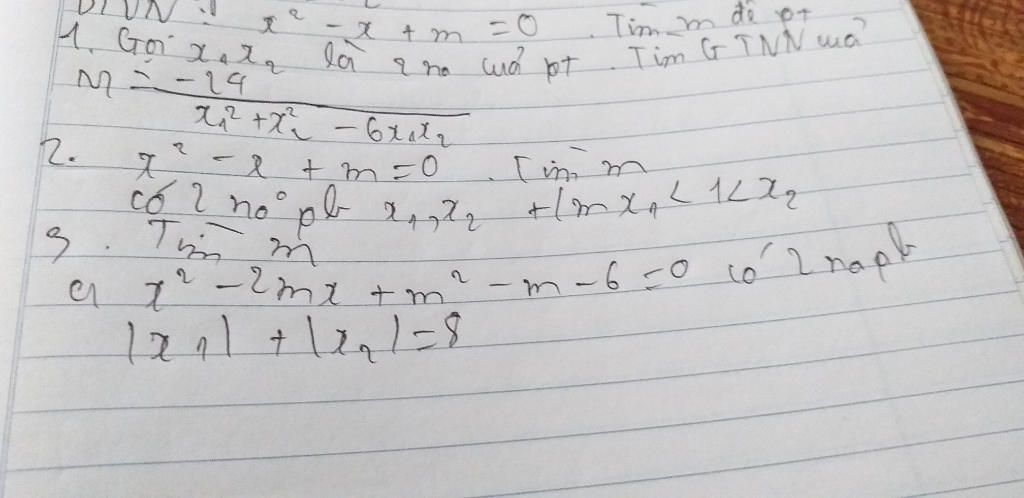 BTVN :
x² - x + m = 0 . Tìm m để pt
1. Gọi x₁x₂ là 2 no cuả pt . Tìm GTNN cuả
M = -24 / x₁² + x₂² - 6x₁x₂
2. x² - x + m = 0 . Tìm m
có 2 no pb x₁, x₂ t/m x₁ < 1 < x₂
3 . Tìm m
a x² - 2mx + m² - m - 6 = 0 có 2 no pb
|x₁| + |x₂| = 8